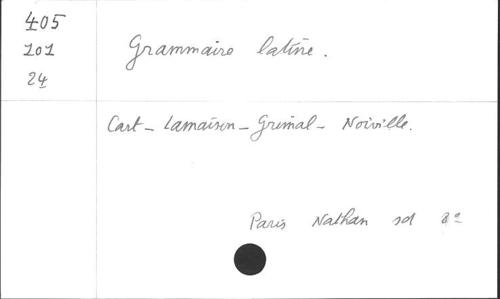 405
101
24
Grammaire latine.
Cart - Lamaison - Grimal - Noiville.
Paris Nathan sd 8°